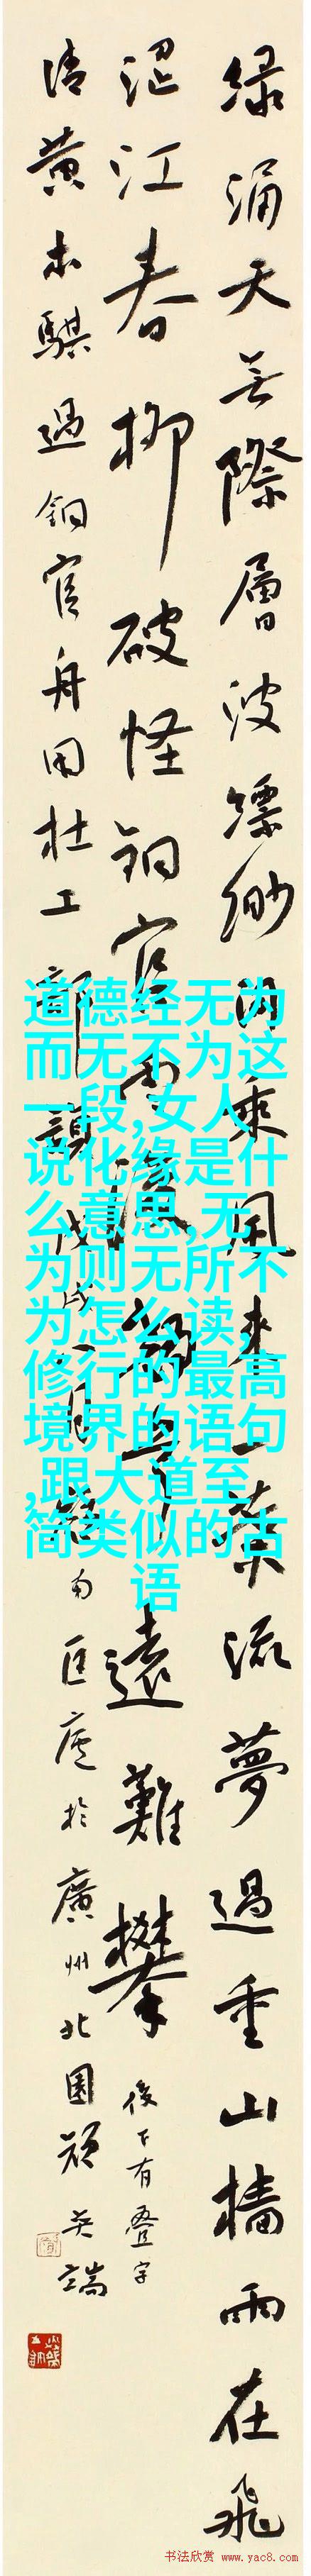 绿涌天无際層波縹缈
乘風来一葉流夢過重山檣雨在飛
江春柳破怪銅官
遠難攀
後下有疊字
清黄本騏過銅官舟用杜工部韻戊戌
月
南匡廬於廣州北園
道德经无为
而无不为这
一段,女人
说化缘是什
么意思,无
为则无所不
为怎么读,
修行的最高
境界的语句
,跟大道至
简类似的古
语
书法欣赏 www.yac8.com